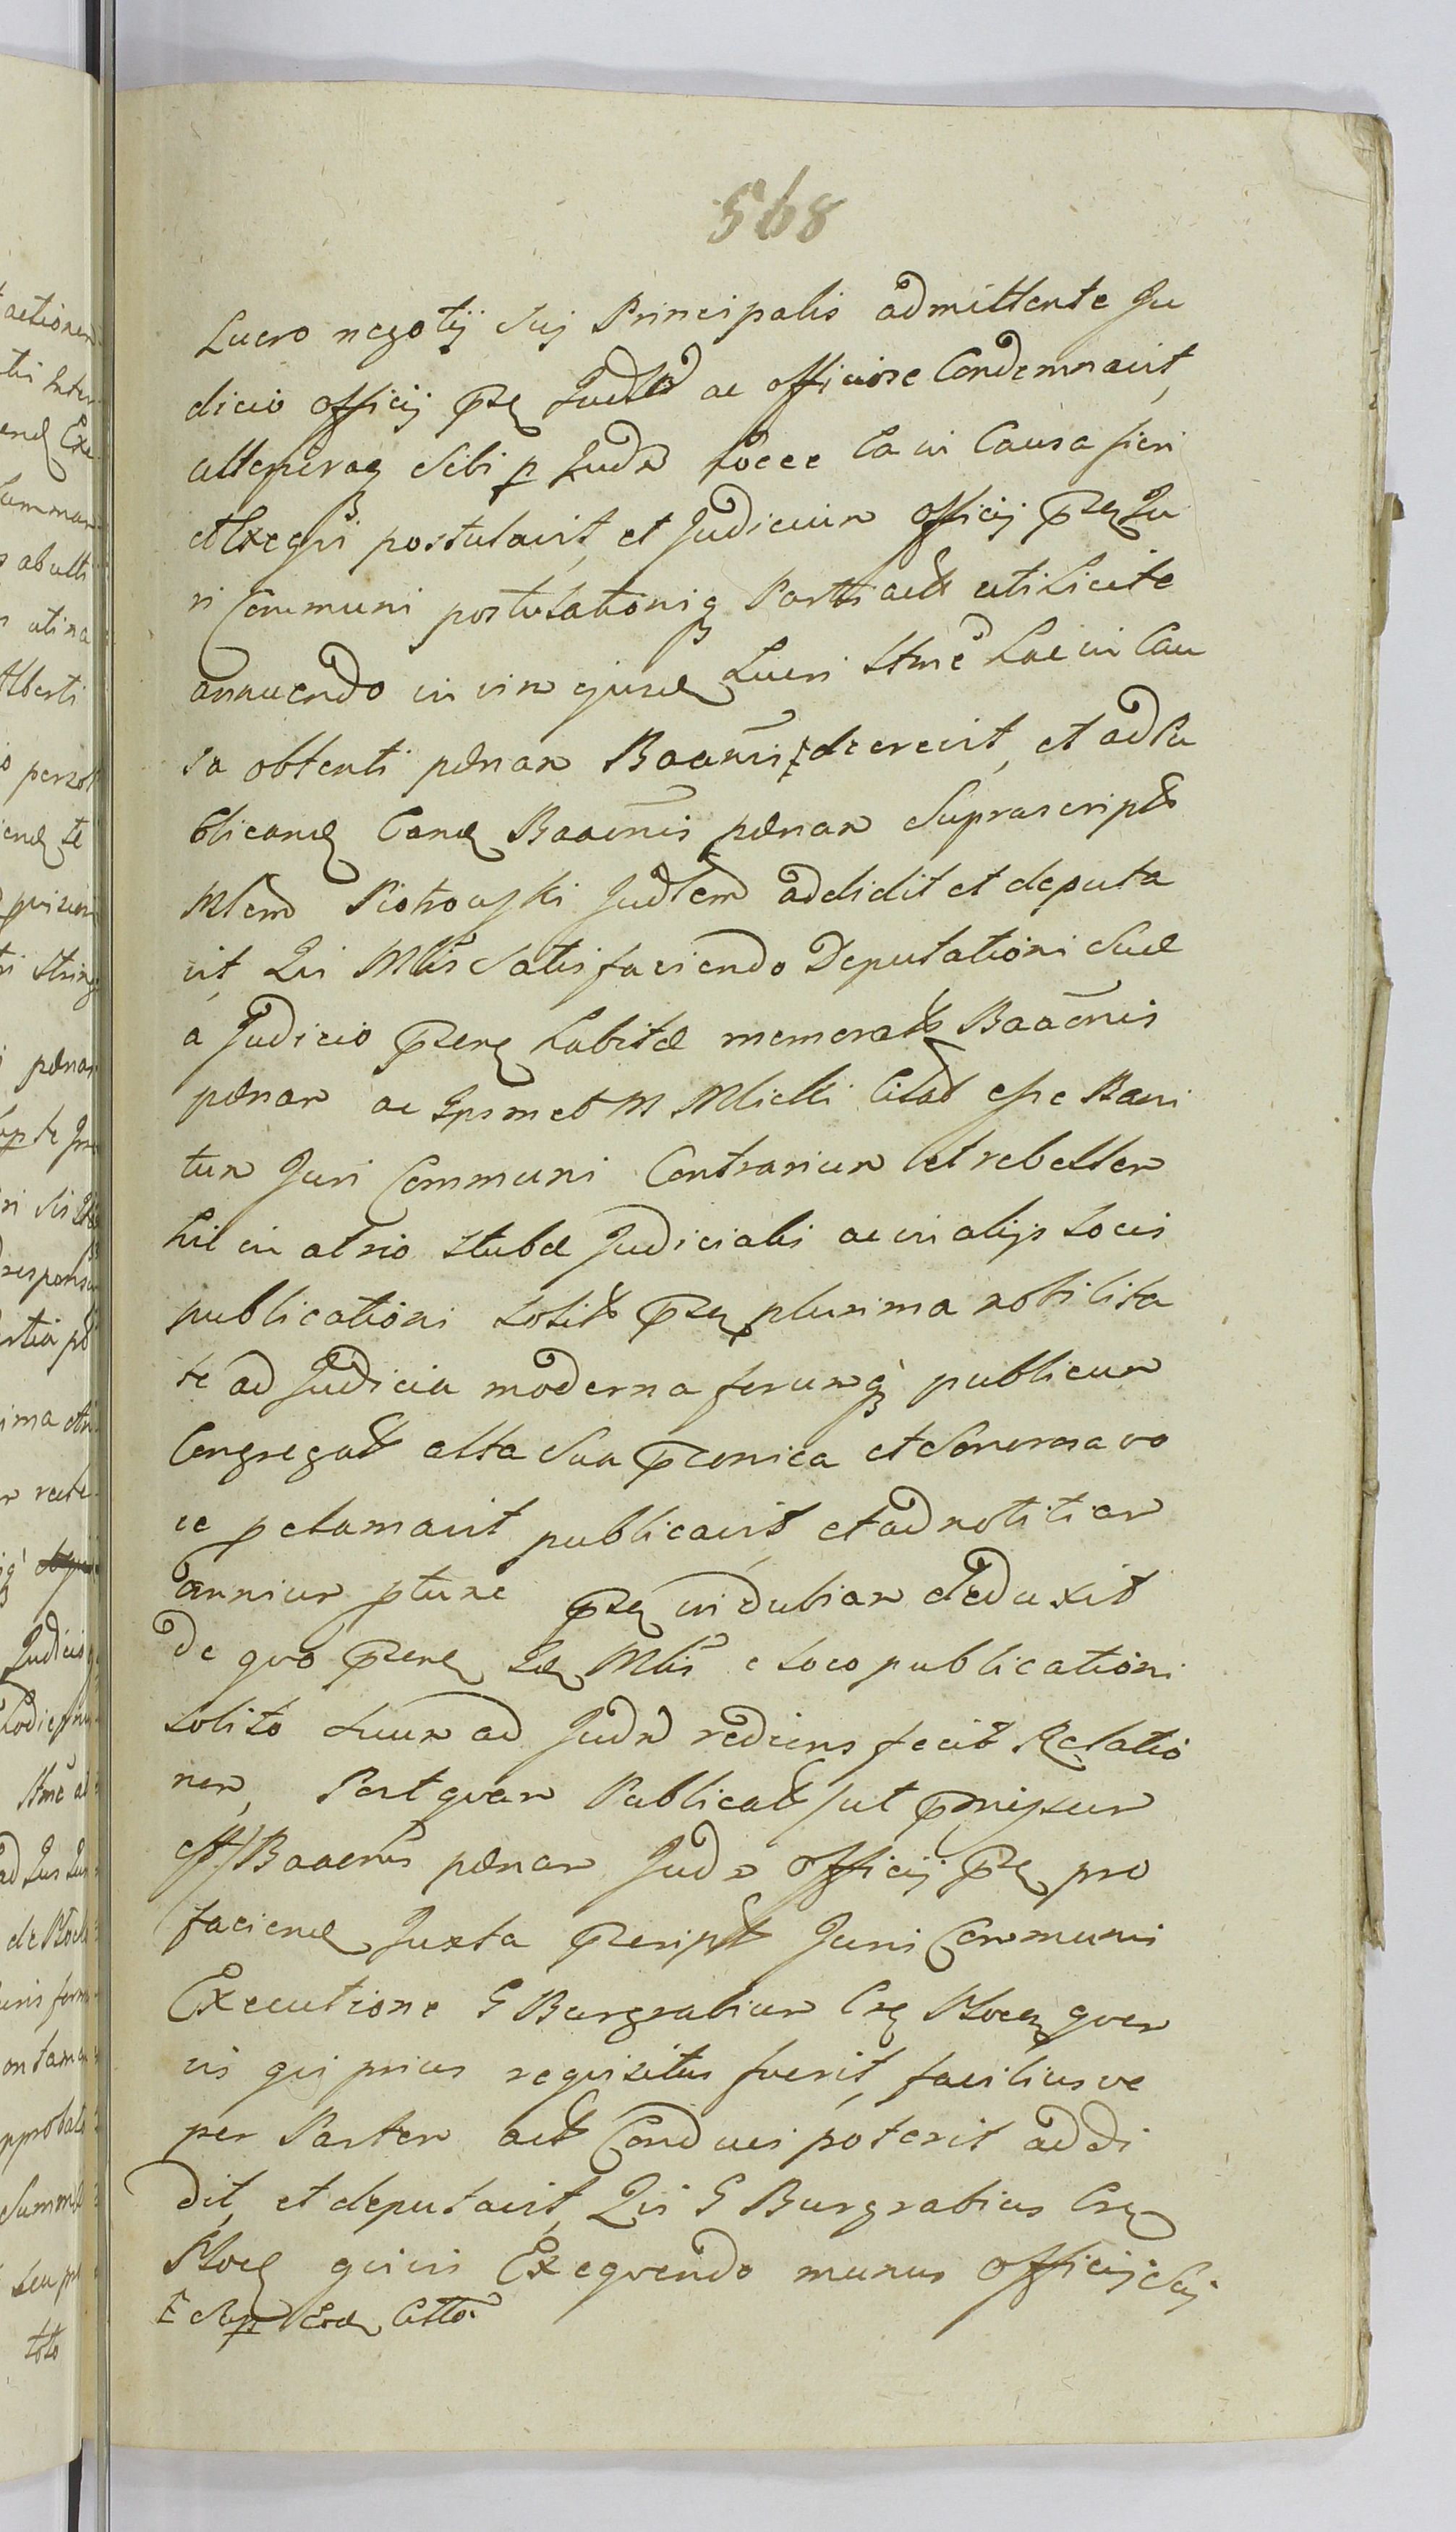 568
Lucro negotij Suj Principalis admittente Ju
dicio officij pse Judlr ac officiose Condemnavit,
ulteriusq Sibi p Judm hocce Ea in Causa fieri
et Exequi postulavit, et Judicium officij pns Ju
ri Communi postulationiq Partis act uti licite
annuendo in vim ejusd Lucri Stme hac in Cau
sa obtenti pænam Baanis decrevit, et ad Pu
blicand Eand Baaenis pænam Suprascript
Mlem Piotrowski Judlem addidit et deputa
vit, Qui Mlis Satisfaciendo Deputationi Suæ
a Judicio psenti habitæ memorat Baaenis
pænam ac Ipsmet M Mlicki Citat esse Bani
tum Juri Communi Contrarium et rebellem
hic in atrio Stubæ Judicialis ac in alijs Locis
publicationi Solit psen plurima nobilita
te ad Judicia moderna forumq publicum
Congregat alta Sua pconica et Sonorosa vo
ce pclamavit publicavit, et ad notitiam
omnium ptunc psen indubiam deduxit
De quo psens Id Mlis e Loco publicationi
Solito Suum ad Judm rediens fecit Relatio
nem, Postquam Publicat /ut pmissum
est/ Baaenis pænam Judm officij pns pro
faciend Juxta pscript Juris Communis
Executione G Burgrabium Crn Plocen quem
vis qui prius requisitus fuerit, faciliusve
per Partem act Conduci poterit addi
dit, et deputavit, Qui G Burgrabius Crn
Plocen quivis Exequendo munus officij Suj